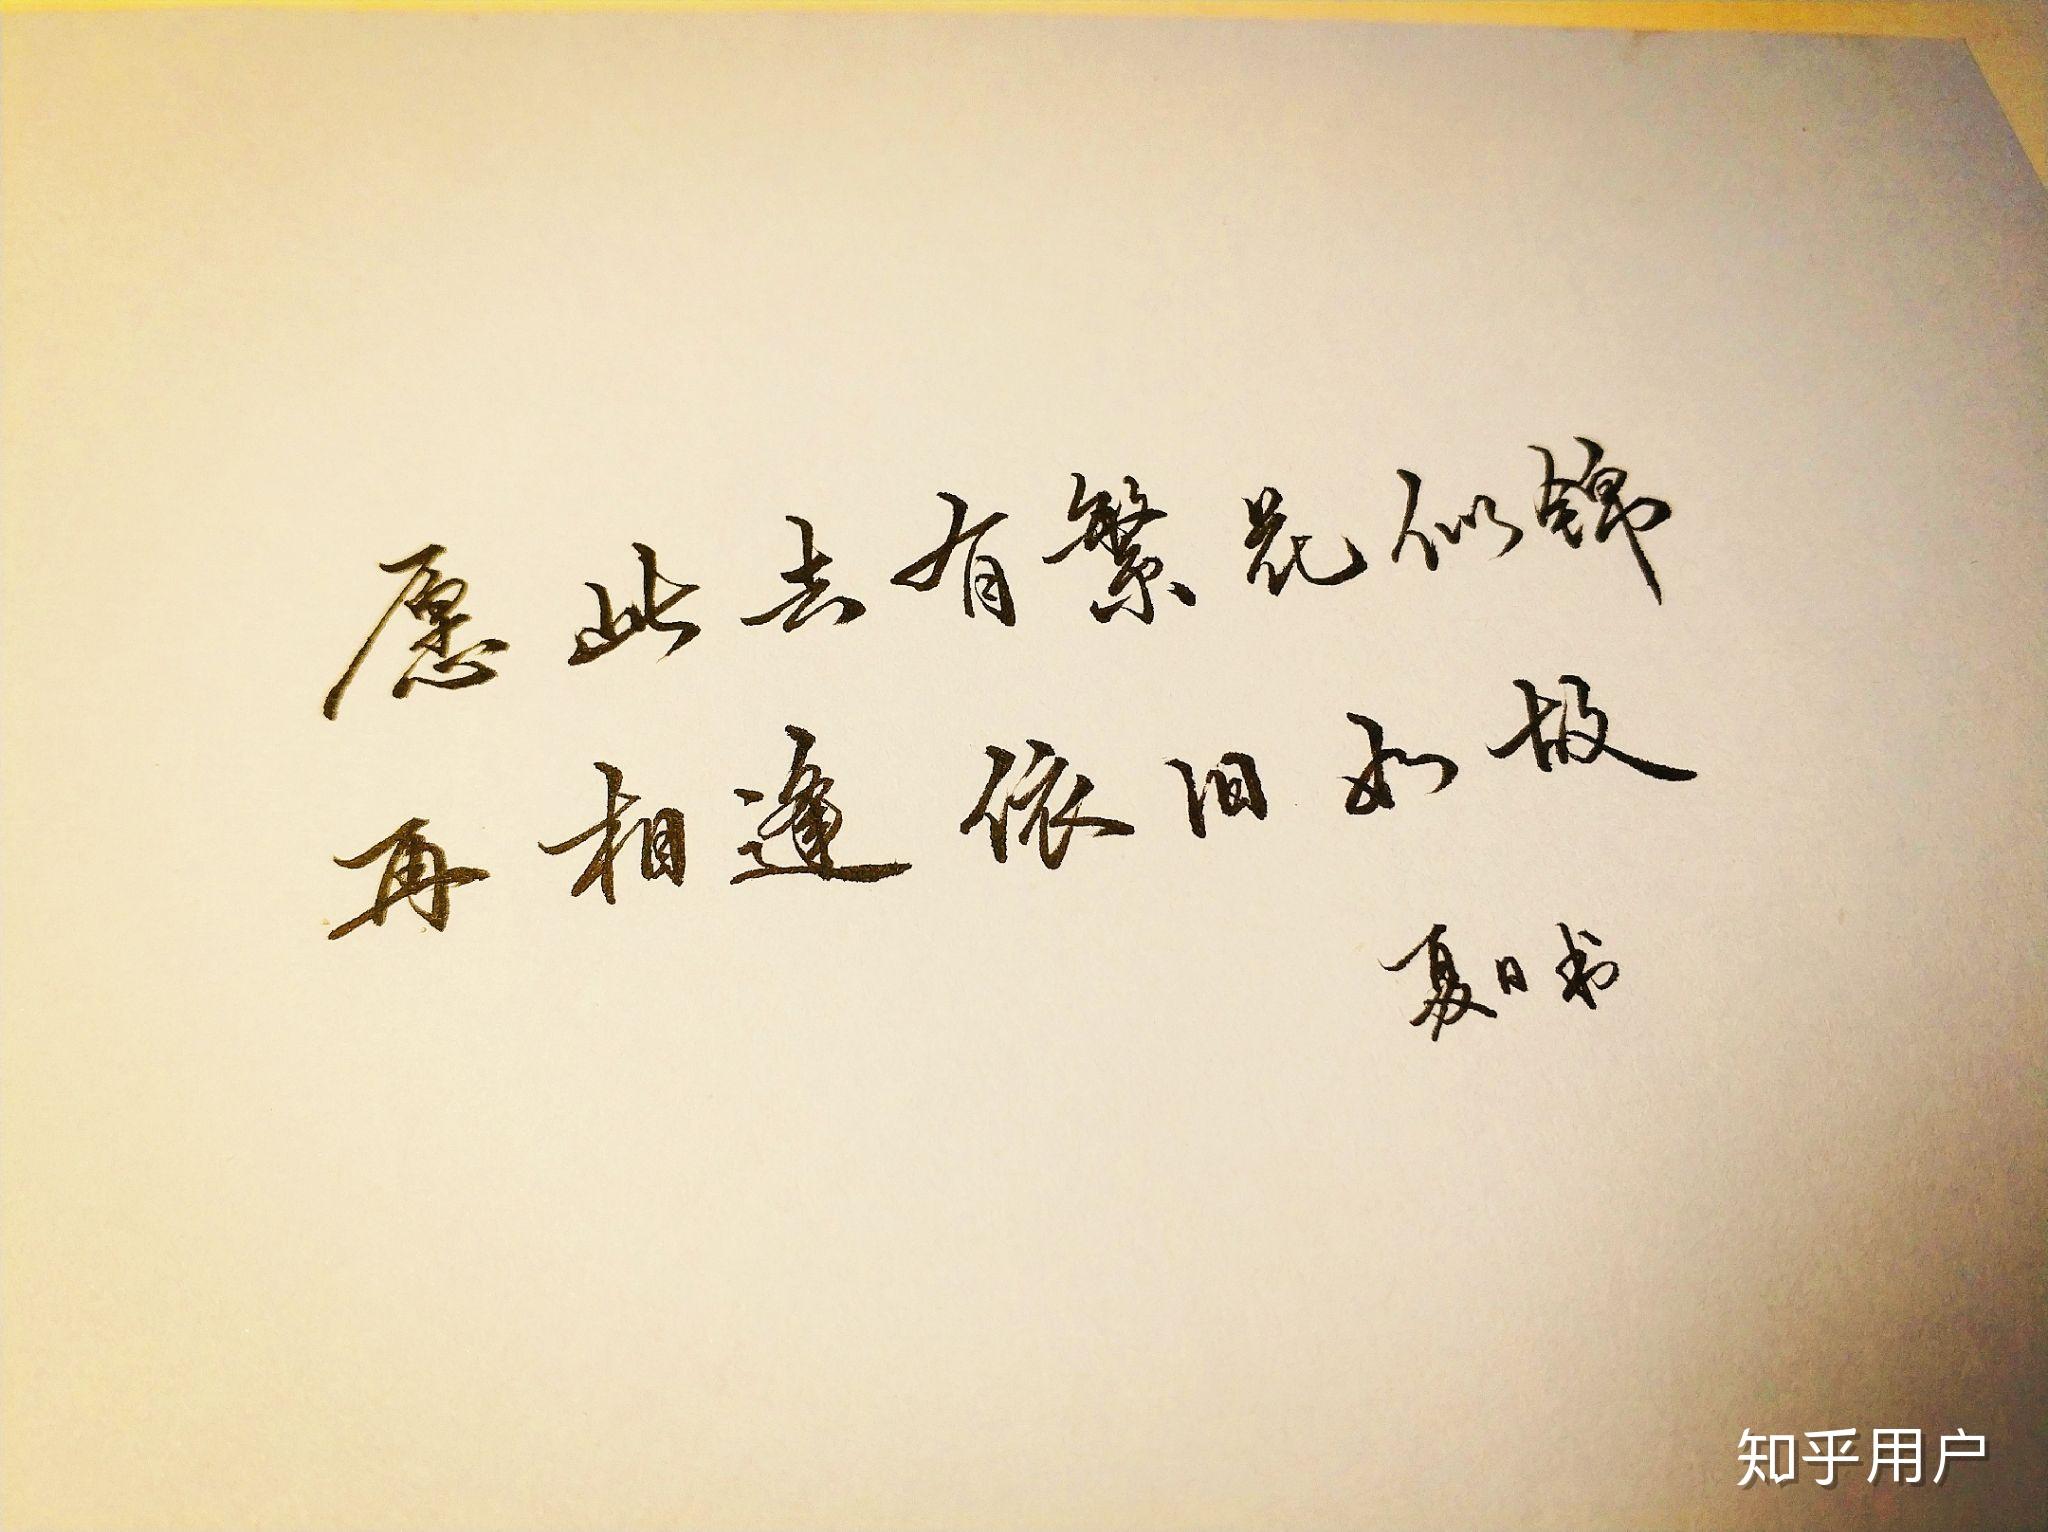 愿此去有繁花似锦
再相逢依旧如故
夏日书
知乎用户